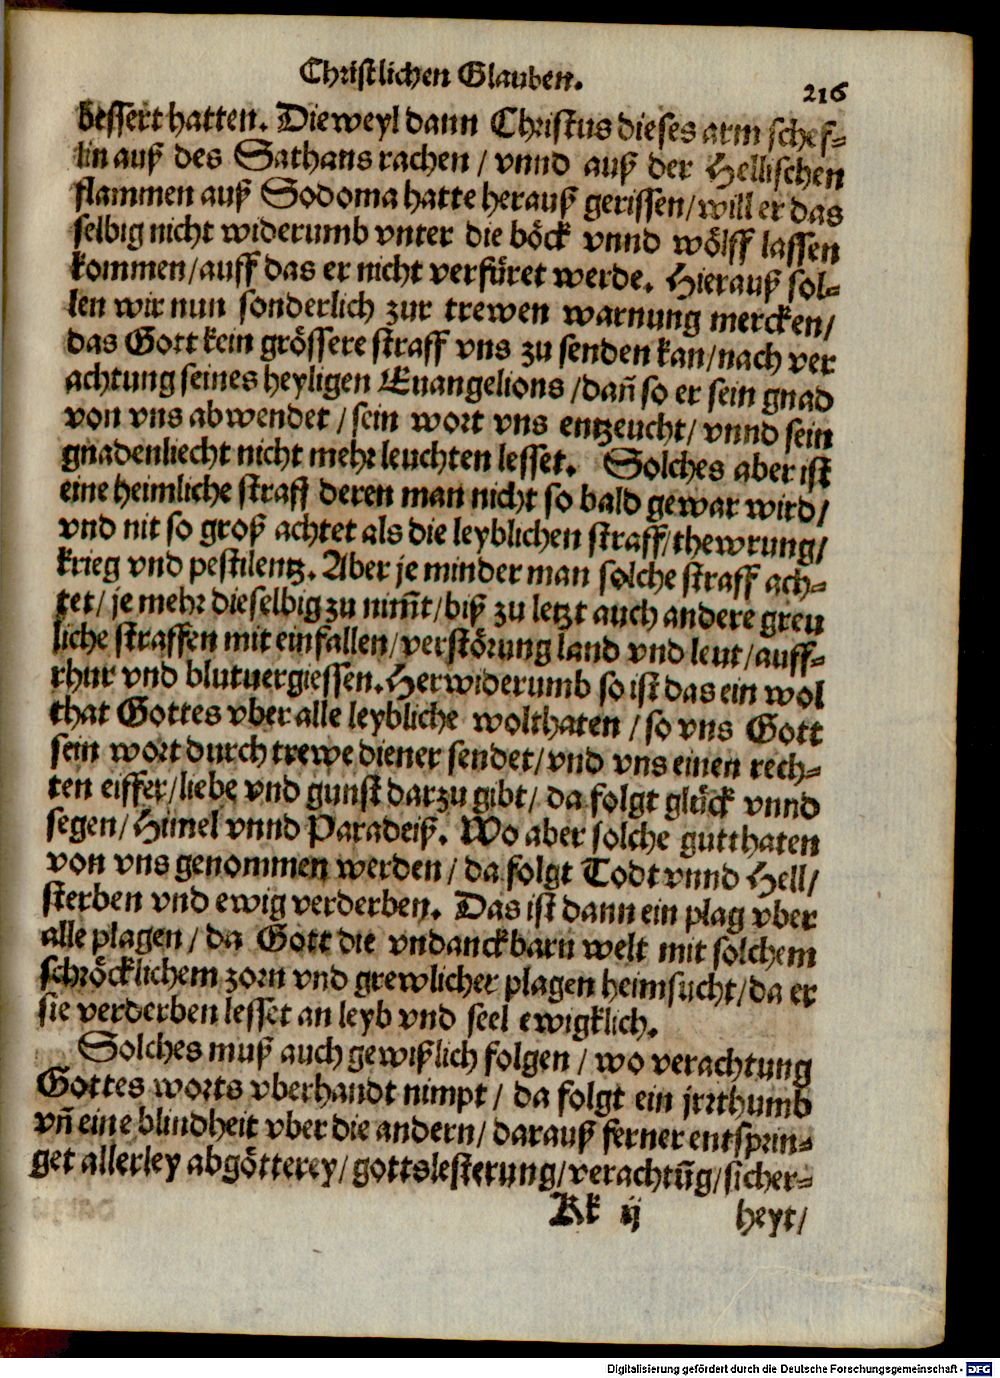 Christlichen Glauben.
216
bessert hatten. Dieweyl dann Christus dieses arm schef-
lin auß des Sathans rachen / vnnd auß der Hellischen
flammen auß Sodoma hatte herauß gerissen / will er das
selbig nicht widerumb vnter die böck vnnd wölff lassen
kommen / auff das er nicht verfüret werde. Hierauß sol-
len wir nun sonderlich zur trewen warnung mercken /
das Gott kein grössere straff vns zu senden kan / nach ver
achtung seines heyligen Euangelions / dañ so er sein gnad
von vns abwendet / sein wort vns entzeucht / vnnd sein
gnadenliecht nicht mehr leuchten lesset. Solches aber ist
eine heimliche straff deren man nicht so bald gewar wird /
vnd nit so groß achtet als die leyblichen straff / thewrung /
krieg vnd pestilentz. Aber je minder man solche straff ach-
tet / je mehr dieselbig zu nim̃t / biß zu letzt auch andere greu
liche straffen mit einfallen / verstörung land vnd leut / auff-
rhur vnd blutuergiessen. Herwiderumb so ist das ein wol
that Gottes vber alle leybliche wolthaten / so vns Gott
sein wort durch trewe diener sendet / vnd vns einen rech-
ten eiffer / liebe vnd gunst darzu gibt / da folgt glück vnnd
segen / Himel vnnd Paradeiß. Wo aber solche gutthaten
von vns genommen werden / da folgt Todt vnnd Hell /
sterben vnd ewig verderben. Das ist dann ein plag vber
alle plagen / da Gott die vndanckbarn welt mit solchem
schröcklichem zorn vnd grewlicher plagen heimsucht / da er
sie verderben lesset an leyb vnd seel ewigklich.
Solches muß auch gewißlich folgen / wo verachtung
Gottes worts vberhandt nimpt / da folgt ein jrrthumb
vñ eine blindheit vber die andern / darauß ferner entsprin-
get allerley abgötterey / gottslesterung / verachtũg / sicher-
Kk ij
heyt /
Digitalisierung gefördert durch die Deutsche Forschungsgemeinschaft - DFG